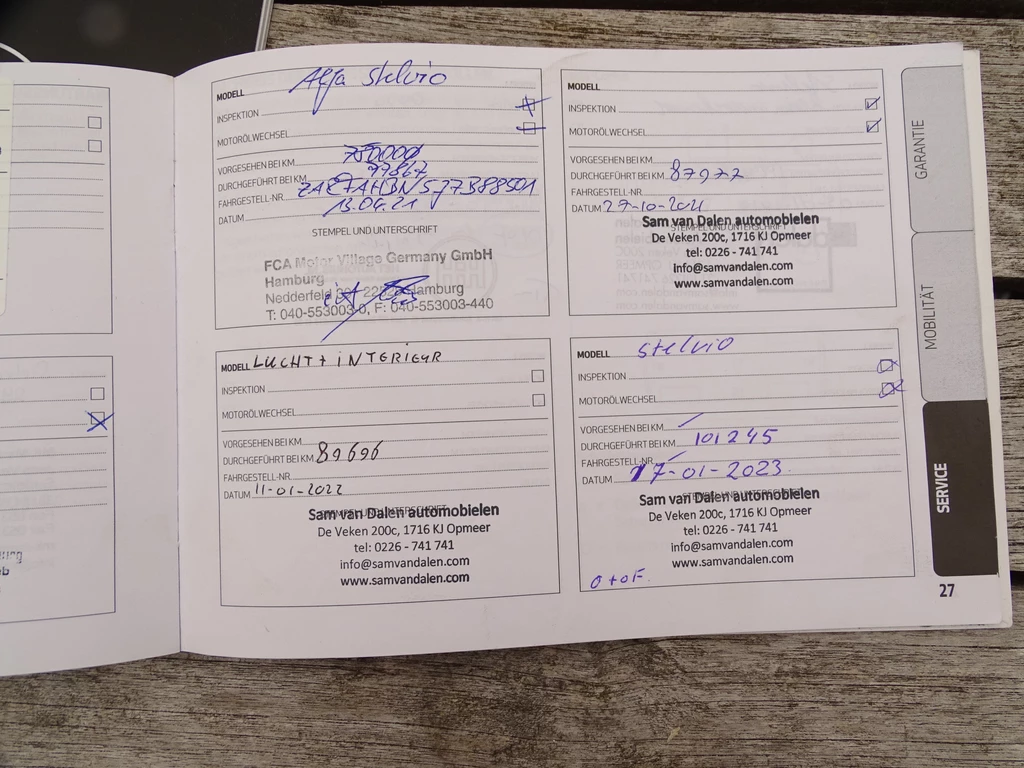 MODELL Alfa Stelvio
INSPEKTION
MOTORÖLWECHSEL
VORGESEHEN BEI KM
DURCHGEFÜHRT BEI KM
FAHRGESTELL-NR.
DATUM 13.04.21
STEMPEL UND UNTERSCHRIFT
FCA Motor Village Germany GmbH
Hamburg
Nedderfeld Hamburg
T: 040-553003-0, F: 040-553003-440
MODELL
INSPEKTION
MOTORÖLWECHSEL
VORGESEHEN BEI KM
DURCHGEFÜHRT BEI KM 87977
FAHRGESTELL-NR.
DATUM 27-10-2021
STEMPEL UND UNTERSCHRIFT
Sam van Dalen automobielen
De Veken 200c, 1716 KJ Opmeer
tel: 0226 - 741 741
info@samvandalen.com
www.samvandalen.com
MODELL LUCHT + INTERIEUR
INSPEKTION
MOTORÖLWECHSEL
VORGESEHEN BEI KM
DURCHGEFÜHRT BEI KM 89696
FAHRGESTELL-NR.
DATUM 11-01-2022
STEMPEL UND UNTERSCHRIFT
Sam van Dalen automobielen
De Veken 200c, 1716 KJ Opmeer
tel: 0226 - 741 741
info@samvandalen.com
www.samvandalen.com
MODELL Stelvio
INSPEKTION
MOTORÖLWECHSEL
VORGESEHEN BEI KM /
DURCHGEFÜHRT BEI KM 101245
FAHRGESTELL-NR. /
DATUM 17-01-2023
STEMPEL UND UNTERSCHRIFT
Sam van Dalen automobielen
De Veken 200c, 1716 KJ Opmeer
tel: 0226 - 741 741
info@samvandalen.com
www.samvandalen.com
O+OF.
GARANTIE
MOBILITÄT
SERVICE
27